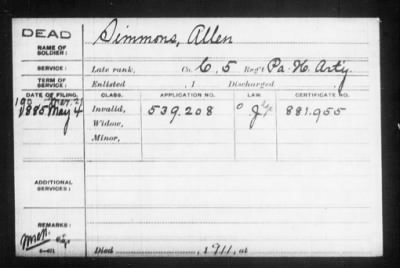 DEAD
NAME OF SOLDIER:
Simmons, Allen
SERVICE:
Late rank, Co. C, 5 Reg't Pa. H. Arty.
TERM OF SERVICE:
Enlisted , 1 Discharged , 1
DATE OF FILING. CLASS. APPLICATION NO. LAW. CERTIFICATE NO.
1885 May 4 Invalid, 539.208 881.955
Widow,
Minor,
ADDITIONAL SERVICES:
REMARKS:
Died , 1911, at